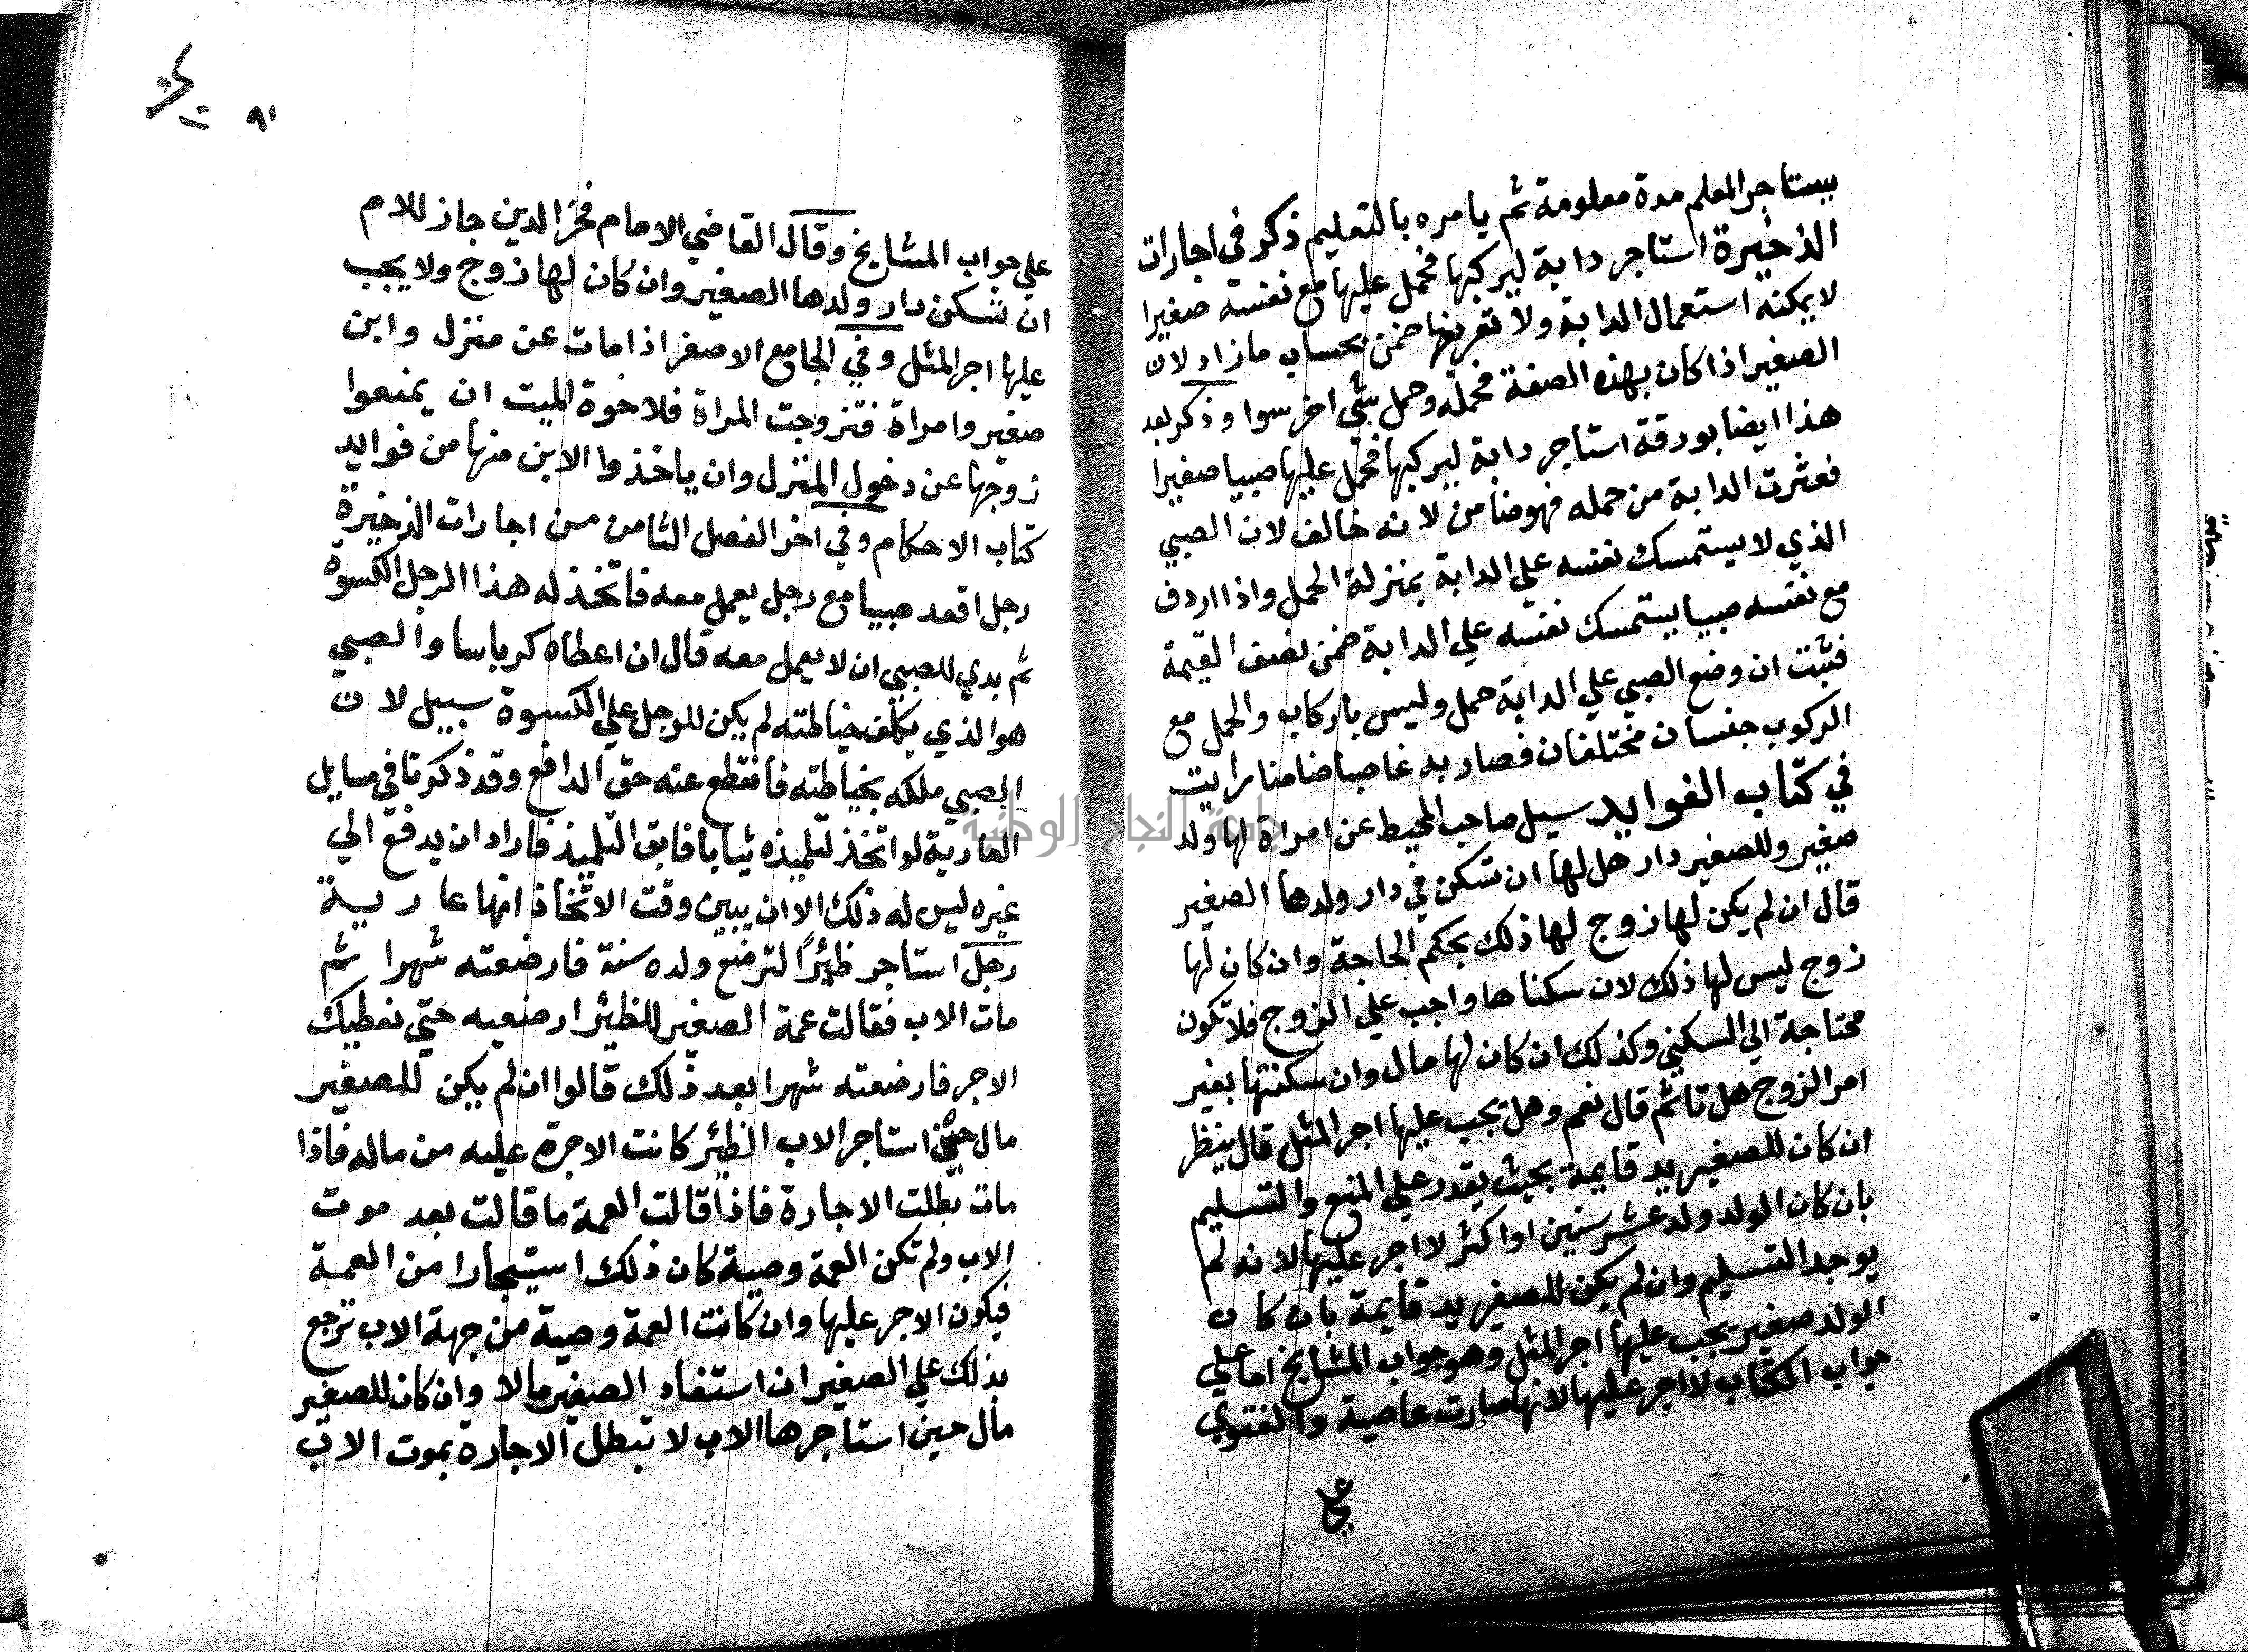 يستاجر المعلم مدة معلومة ثم يامره بالتعليم ذكر في اجارات
الذخيرة استاجر دابة ليركبها فحمل عليها مع نفسه صغيرا
لا يمكنه استعمال الدابة ولا تفريغها ضمن بحساب ما زاد لان
الصغير اذا كان بهذه الصفة فحمله وحمل شي اخر سوا وذكر بعد
هذا ايضا بورقة استاجر دابة ليركبها فحمل عليها صبيا صغيرا
فعثرت الدابة من حمله فهو ضامن لانه خالف لان الصبي
الذي لا يستمسك نفسه علي الدابة بمنزلة الحمل واذا اردف
مع نفسه صبيا يستمسك نفسه علي الدابة ضمن نصف القيمة
فثبت ان وضع الصبي علي الدابة حمل وليس باركاب والحمل مع
الركوب جنسان مختلفان فصار به غاصبا ضامنا رايت
في كتاب الفوايد سيل صاحب المحيط عن امراة لها ولد
صغير وللصغير دار هل لها ان تسكن في دار ولدها الصغير
قال ان لم يكن لها زوج لها ذلك بحكم الحاجة وان كان لها
زوج ليس لها ذلك لان سكناها واجب علي الزوج فلا تكون
محتاجة الي السكني وكذلك ان كان لها مال وان سكنتها بغير
امر الزوج هل تاثم قال نعم وهل يجب عليها اجر المثل قال ينظر
ان كان للصغير يد قايمة بحيث يقدر علي المنع والتسليم
بان كان الولد ولد عشر سنين او اكثر لا اجر عليها لانه لم
يوجد التسليم وان لم يكن للصغير يد قايمة بان كان
الولد صغير يجب عليها اجر المثل وهو جواب المشايخ اما علي
جواب الكتاب لا اجر عليها لانها صارت غاصبة والفتوي
علي
٩١
علي جواب المشايخ وقال القاضي الامام فخر الدين جاز للام
ان تسكن دار ولدها الصغير وان كان لها زوج ولا يجب
عليها اجر المثل وفي الجامع الاصغر اذا مات عن منزل وابن
صغير وامراة فتزوجت المراة فلاخوة الميت ان يمنعوا
زوجها عن دخول المنزل وان ياخذوا الابن منها من فوايد
كتاب الاحكام وفي اخر الفصل الثامن من اجارات الذخيرة
رجل اقعد صبيا مع رجل يعمل معه فاتخذ له هذا الرجل الكسوة
ثم بدي للصبي ان لا يعمل معه قال ان اعطاه كرباسا والصبي
هو الذي يكلف خياطته لم يكن للرجل علي الكسوة سبيل لان
الصبي ملكه بخياطته فانقطع عنه حق الدافع وقد ذكرنا في مسايل
العارية لو اتخذ لتلميذه ثيابا فابق التلميذ فاراد ان يدفع الي
غيره ليس له ذلك الا ان يبين وقت الاتخاذ انها عارية
رجل استاجر ظئرًا لترضع ولده سنة فارضعته شهرا ثم
مات الاب فقالت عمة الصغير للظئر ارضعيه حتي نعطيك
الاجر فارضعته شهرا بعد ذلك قالوا ان لم يكن للصغير
مال حين استاجر الاب الظئر كانت الاجرة عليه من ماله فاذا
مات بطلت الاجارة فاذا قالت العمة ما قالت بعد موت
الاب ولم تكن العمة وصية كان ذلك استيجارا من العمة
فيكون الاجر عليها وان كانت العمة وصية من جهة الاب ترجع
بذلك علي الصغير ان استفاد الصغير مالا وان كان للصغير
مال حين استاجرها الاب لا تبطل الاجارة بموت الاب
جامعة النجاح الوطنية